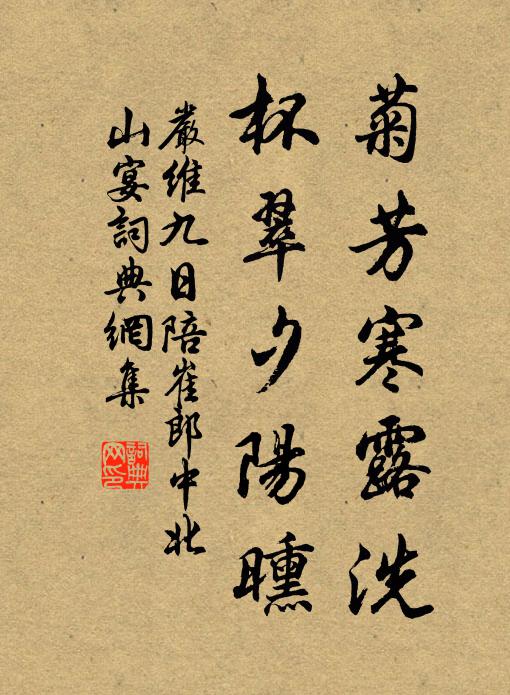 菊芳寒露洗
杯翠夕陽曛
嚴維九日陪崔郎中北
山宴詞典網集
詞典
网印